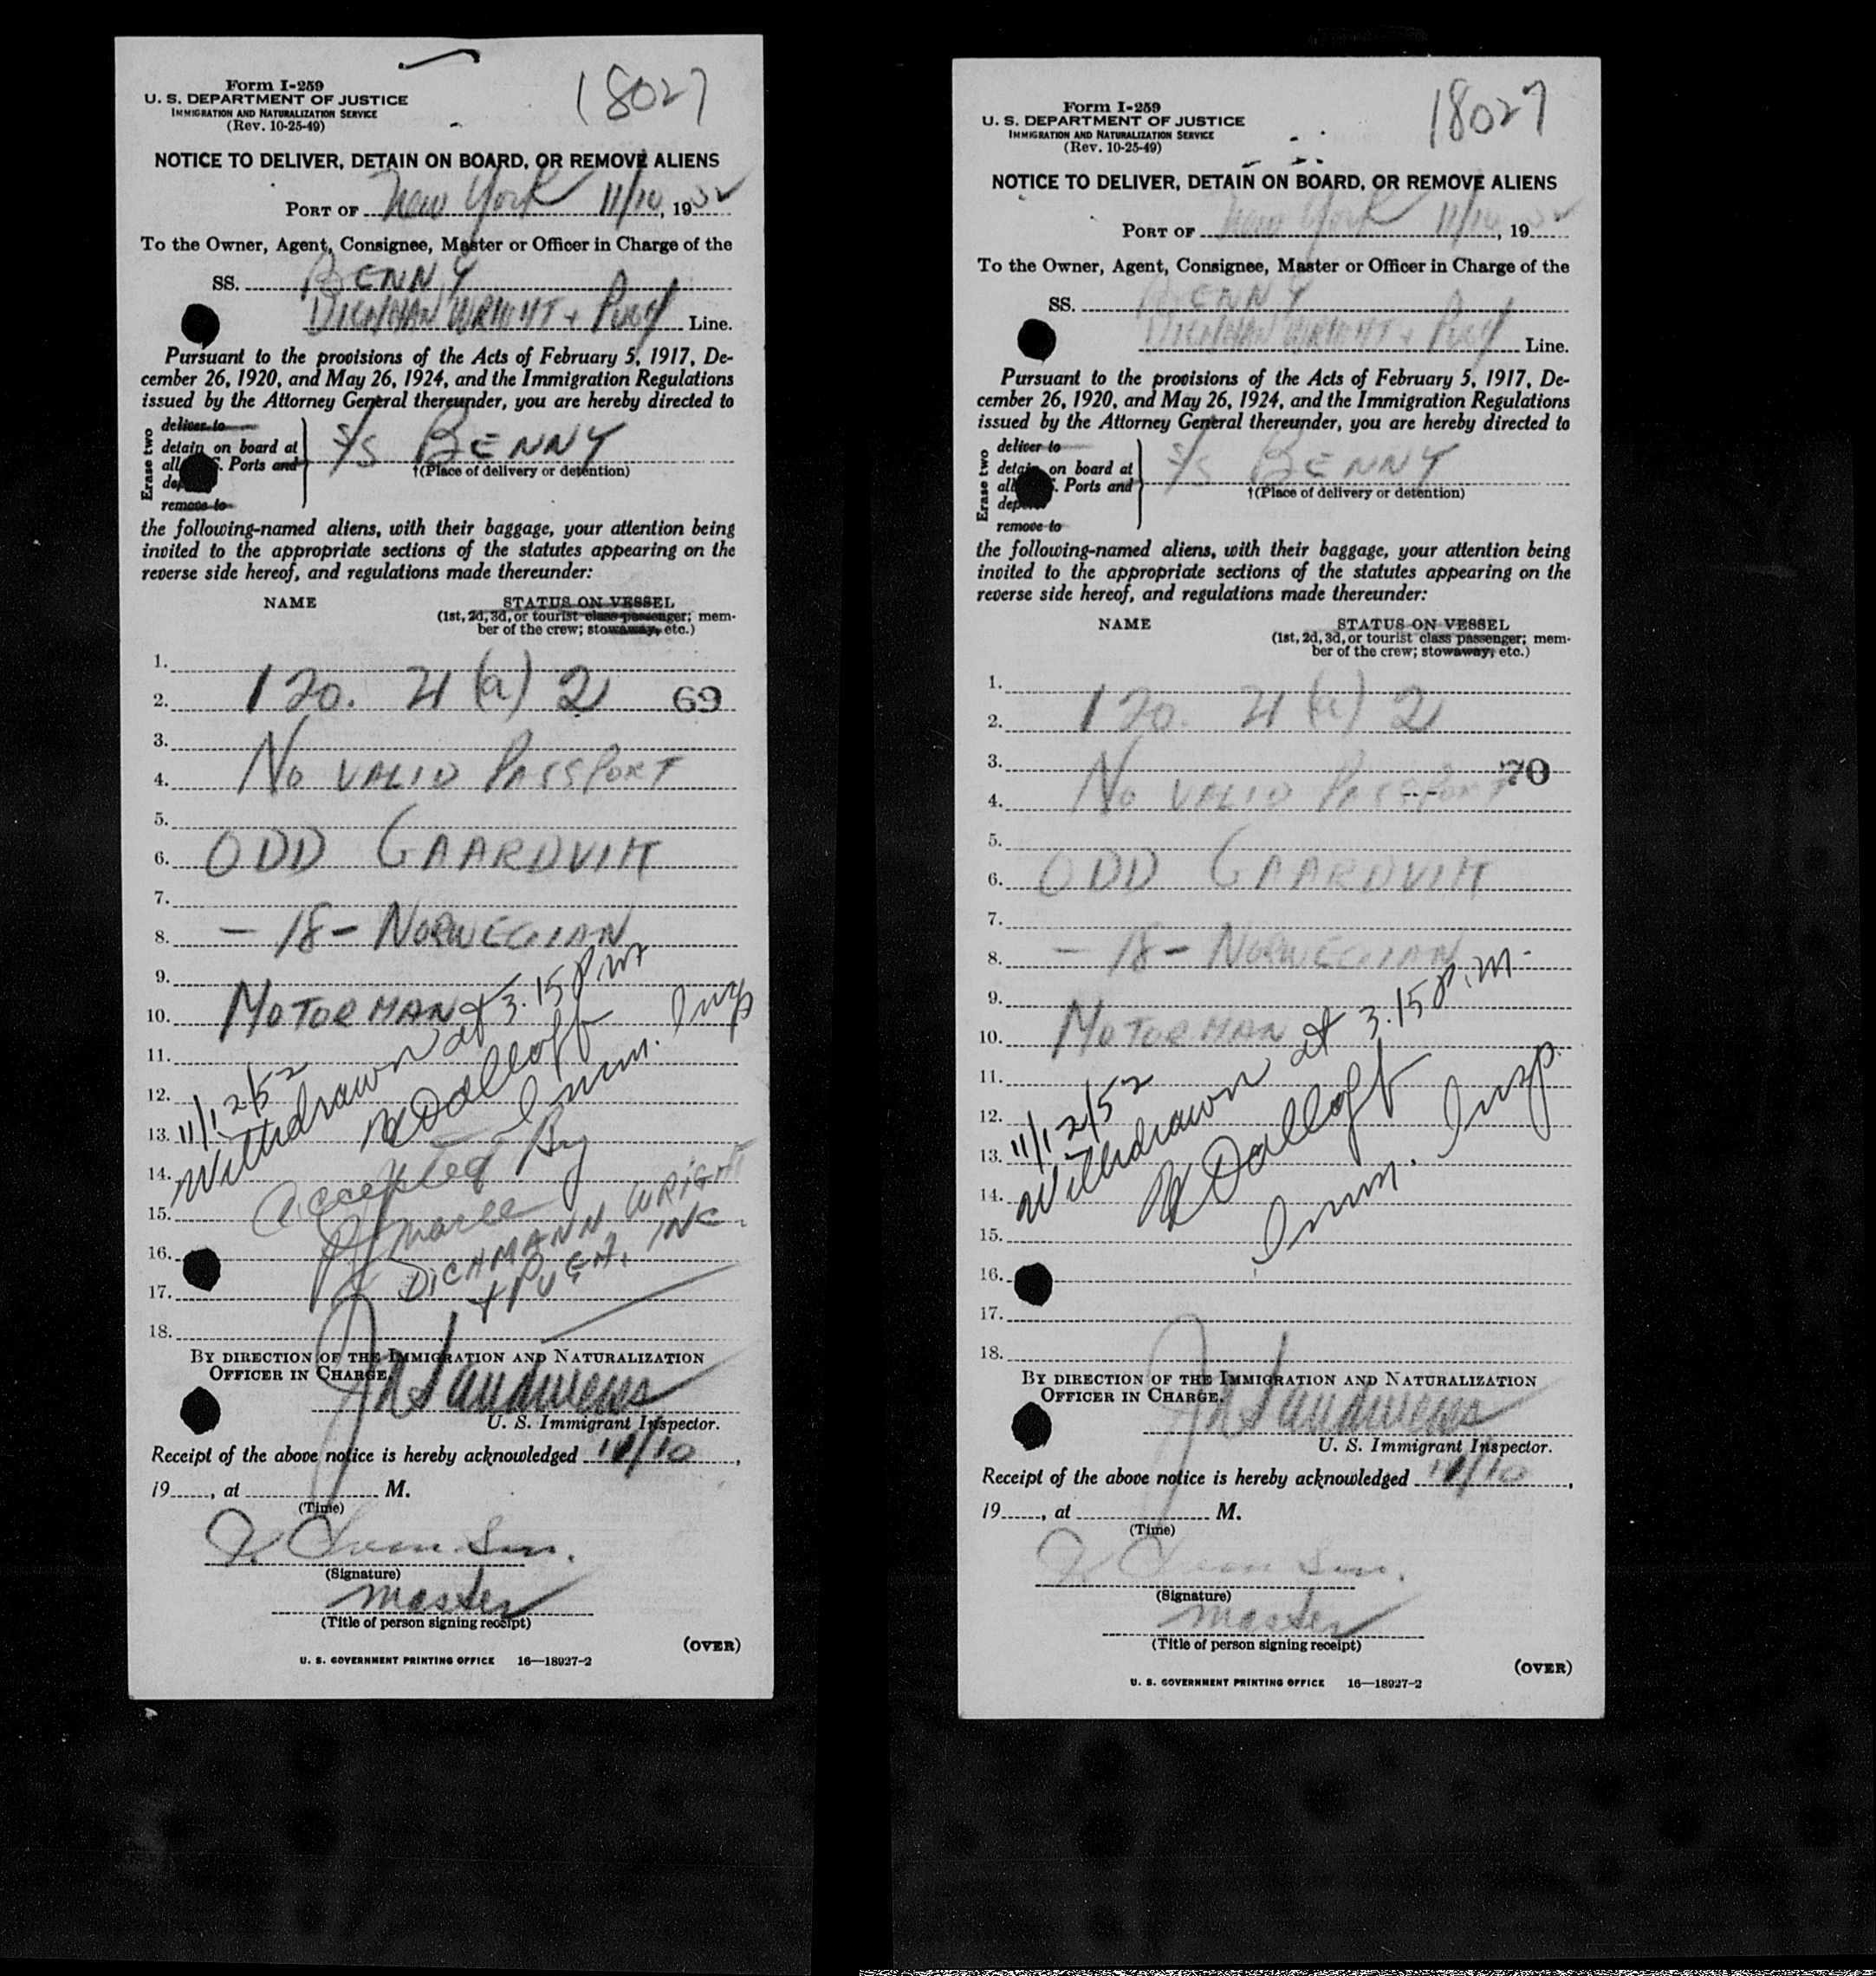 Form I-259
U. S. DEPARTMENT OF JUSTICE
IMMIGRATION AND NATURALIZATION SERVICE
(Rev. 10-25-49)
18027
NOTICE TO DELIVER, DETAIN ON BOARD, OR REMOVE ALIENS
PORT OF New York 11/10, 1952
To the Owner, Agent, Consignee, Master or Officer in Charge of the
SS. BENNY
WRIGHT + Pugh Line.
Pursuant to the provisions of the Acts of February 5, 1917, De-
cember 26, 1920, and May 26, 1924, and the Immigration Regulations
issued by the Attorney General thereunder, you are hereby directed to
Erase two
deliver to
detain on board at
all S. Ports and
remove to
S/S BENNY
†(Place of delivery or detention)
the following-named aliens, with their baggage, your attention being
invited to the appropriate sections of the statutes appearing on the
reverse side hereof, and regulations made thereunder:
NAME
STATUS ON VESSEL
(1st, 2d, 3d, or tourist class passenger; mem-
ber of the crew; stowaway, etc.)
1.
2. 120. 21 (a) 2 69
3.
4. NO VALID PASSPORT
5.
6. ODD GAARDVIK
7.
8. – 18 – NORWEGIAN
9.
10. MOTORMAN
11.
12.
13.
14.
15.
16.
17.
18.
11/12/52
Withdrawn at 3.15 P.M.
Imm. Insp
Accepted By
DICHMANN WRIGHT
+ PUGH, INC.
BY DIRECTION OF THE IMMIGRATION AND NATURALIZATION
OFFICER IN CHARGE.
U. S. Immigrant Inspector.
Receipt of the above notice is hereby acknowledged 11/10,
19, at M.
(Time)
(Signature)
master
(Title of person signing receipt)
(OVER)
U. S. GOVERNMENT PRINTING OFFICE 16—18927-2
Form I-259
U. S. DEPARTMENT OF JUSTICE
IMMIGRATION AND NATURALIZATION SERVICE
(Rev. 10-25-49)
18027
NOTICE TO DELIVER, DETAIN ON BOARD, OR REMOVE ALIENS
PORT OF New York 11/10, 1952
To the Owner, Agent, Consignee, Master or Officer in Charge of the
SS. BENNY
WRIGHT + Pugh Line.
Pursuant to the provisions of the Acts of February 5, 1917, De-
cember 26, 1920, and May 26, 1924, and the Immigration Regulations
issued by the Attorney General thereunder, you are hereby directed to
Erase two
deliver to
detain on board at
all S. Ports and
remove to
S/S BENNY
†(Place of delivery or detention)
the following-named aliens, with their baggage, your attention being
invited to the appropriate sections of the statutes appearing on the
reverse side hereof, and regulations made thereunder:
NAME
STATUS ON VESSEL
(1st, 2d, 3d, or tourist class passenger; mem-
ber of the crew; stowaway, etc.)
1.
2. 120. 21 (a) 2
3. 70
4. NO VALID PASSPORT
5.
6. ODD GAARDVIK
7.
8. – 18 – NORWEGIAN
9.
10. MOTORMAN
11.
12.
13.
14.
15.
16.
17.
18.
11/12/52
Withdrawn at 3.15 P.M.
Imm. Insp.
BY DIRECTION OF THE IMMIGRATION AND NATURALIZATION
OFFICER IN CHARGE.
U. S. Immigrant Inspector.
Receipt of the above notice is hereby acknowledged 11/10,
19, at M.
(Time)
(Signature)
master
(Title of person signing receipt)
(OVER)
U. S. GOVERNMENT PRINTING OFFICE 16—18927-2